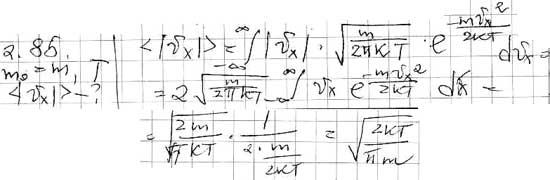 2.85.
m₀ = m, T
<|vₓ|> - ?
<|vₓ|> = ∫_{-∞}^{∞} |vₓ| · √(m/(2πkT)) · e^{-mvₓ²/(2kT)} dvₓ =
= 2 √(m/(2πkT)) ∫_{-∞}^{∞} vₓ e^{-mvₓ²/(2kT)} dvₓ =
= √(2m/(πkT)) · 1/(2 · m/(2kT)) = √(2kT/(πm))